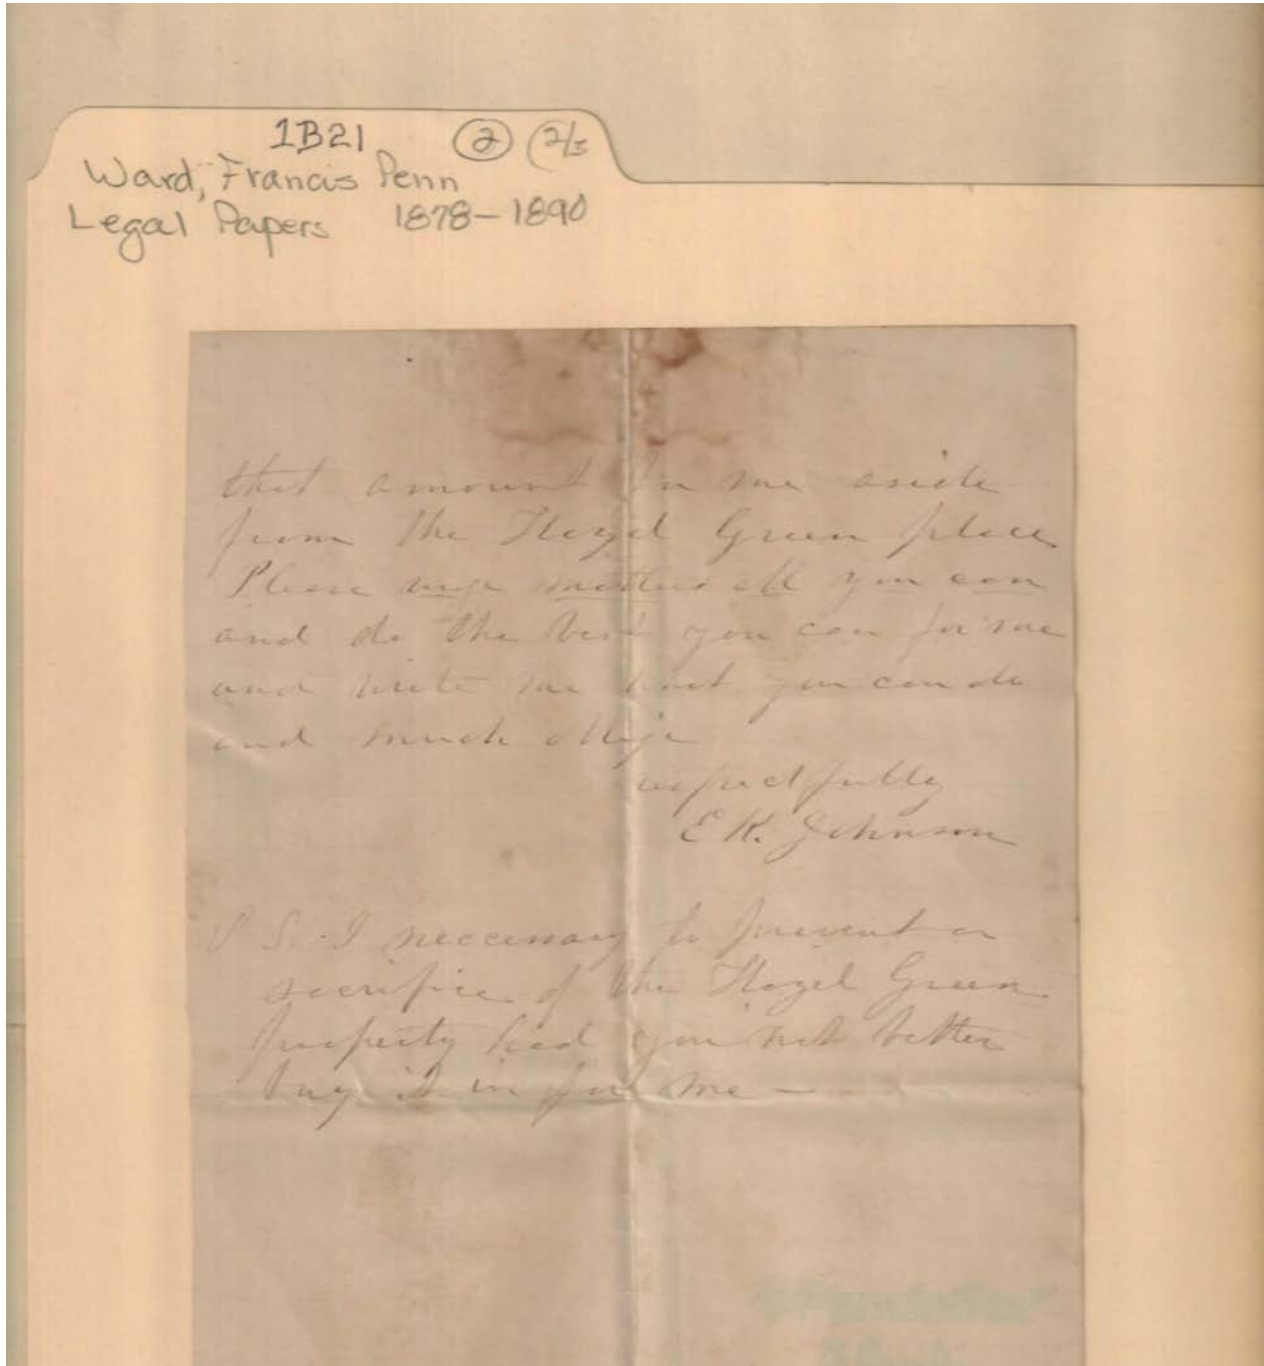 1B21 2 (2/3
Ward, Francis Penn
Legal Papers 1878-1890
that amount in me aside
from the Hazel Green place
Please urge matters all you can
and do the best you can for me
and write me what you can do
and much oblige
respectfully
E K. Johnson
P S. I neccessary to prevent a
sacrifice of the Hazel Green
property had you not better
buy it in for me —